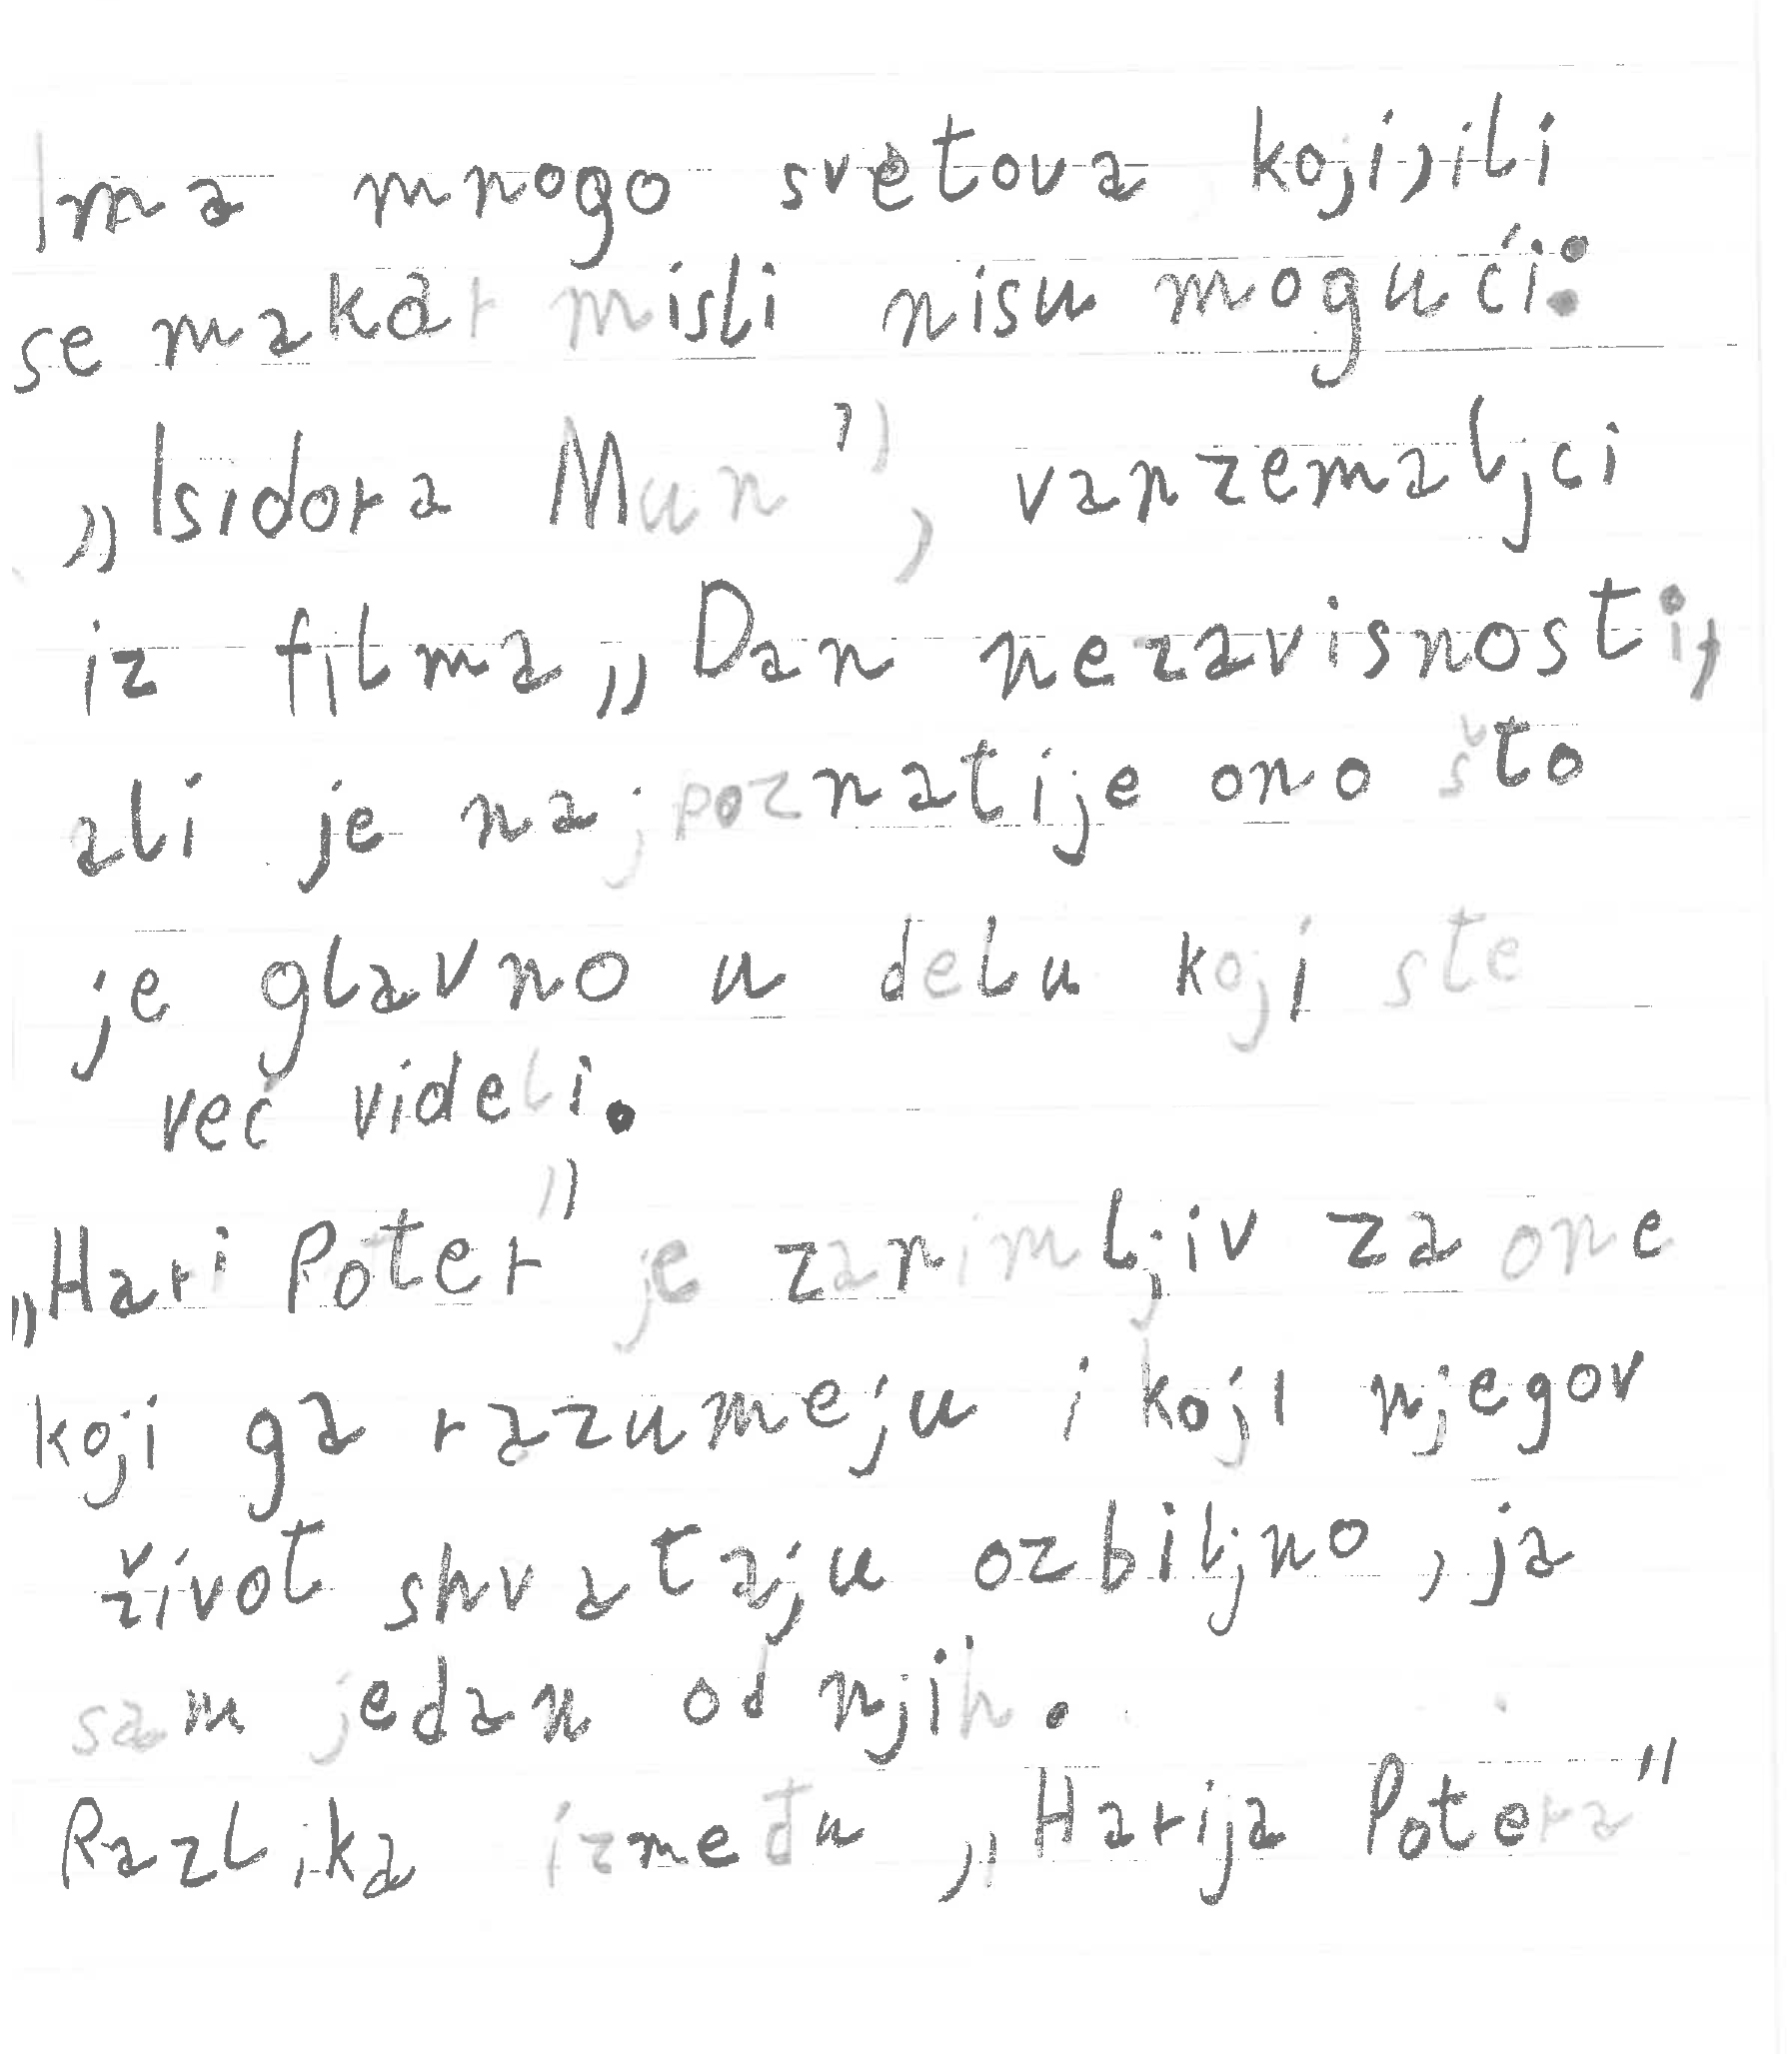 Ima mnogo svetova koji, ili
se makar misli nisu mogući:
„Isidora Mun”, vanzemaljci
iz filma „Dan nezavisnosti,
ali je najpoznatije ono što
je glavno u delu koji ste
već videli.
„Hari Poter” je zanimljiv za one
koji ga razumeju i koji njegov
život shvataju ozbiljno, ja
sam jedan od njih.
Razlika između „Harija Potera”